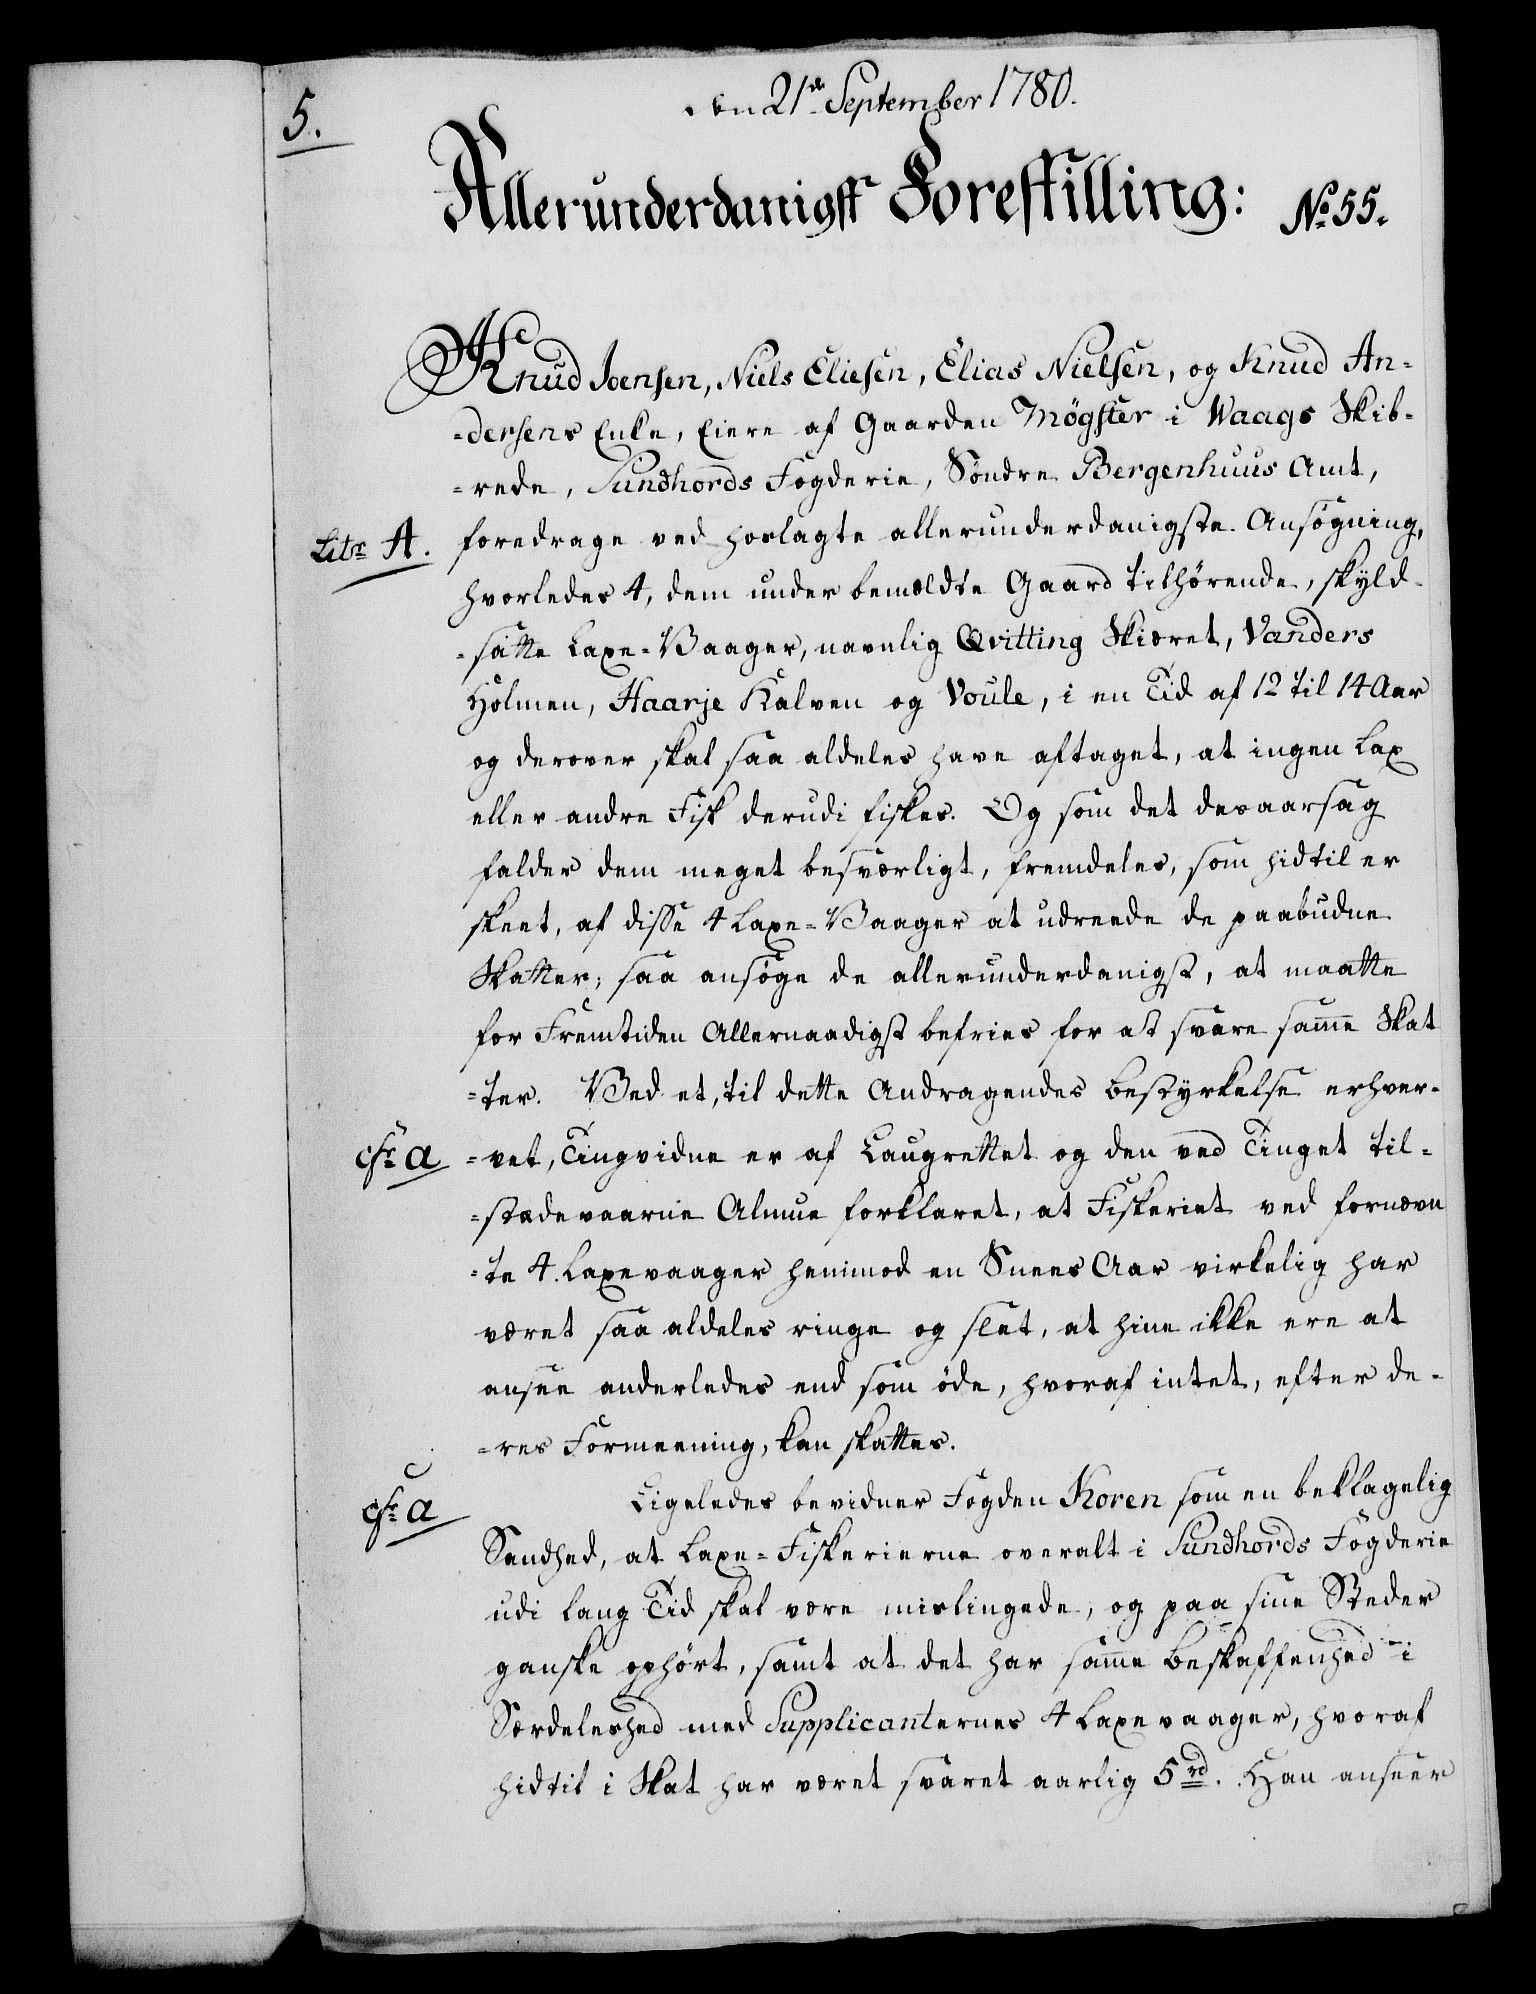 5.
den 21de September 1780.
Allerunderdanigst Forestilling: No 55.
Knud Joensen, Niels Eliesen, Elias Nielsen, og Knud An-
=dersens Enke, Eiere af Gaarden Mögster i Waags Skib-
=rede, Sundhords Fogderie, Söndre Bergenhuus Amt,
Litr A. foredrage ved hoslagte allerunderdanigste Ansögning,
hvorledes 4, dem under bemældte Gaard tilhörende, skyld-
=satte Laxe=Vaager, navnlig Qvitting Skiæret, Vanders
Holmen, Haarje Kalven og Voule, i en Tid af 12 til 14 Aar
og derover skal saa aldeles have aftaget, at ingen Lax
eller andre Fisk derudi fiskes. Og som det desaarsag
falder dem meget besværligt, fremdeles, som hidtil er
skeet, af disse 4 Laxe=Vaager at udreede de paabudne
Skatter; saa ansöge de allerunderdanigst, at maatte
for Fremtiden Allernaadigst befries for at svare samme Skat
=ter. Ved et, til dette Andragendes Bestyrkelse erhver-
cfr a =vet, Tingvidne er af Laugrettet og den ved Tinget til=
=stædeværne Almue forklaret, at Fiskeriet ved fornævn
=te 4. Laxevaager henimod en Snees Aar virkelig har
været saa aldeles ringe og slet, at hine ikke ere at
ansee anderledes end som öde, hvoraf intet, efter de-
=res Formeening, kan skattes.
cfr a Ligeledes bevidner Fogden Koren som en beklagelig
Sandhed, at Laxe=Fiskerierne overalt i Sundhords Fogderie
udi lang Tid skal være mislingede, og paa sine Steder
ganske ophört, samt at det har samme Beskaffenhed i
Særdeleshed med Supplicanternes 4 Laxevaager, hvoraf
hidtil i Skat har været svaret aarlig 5 rd. Han anseer